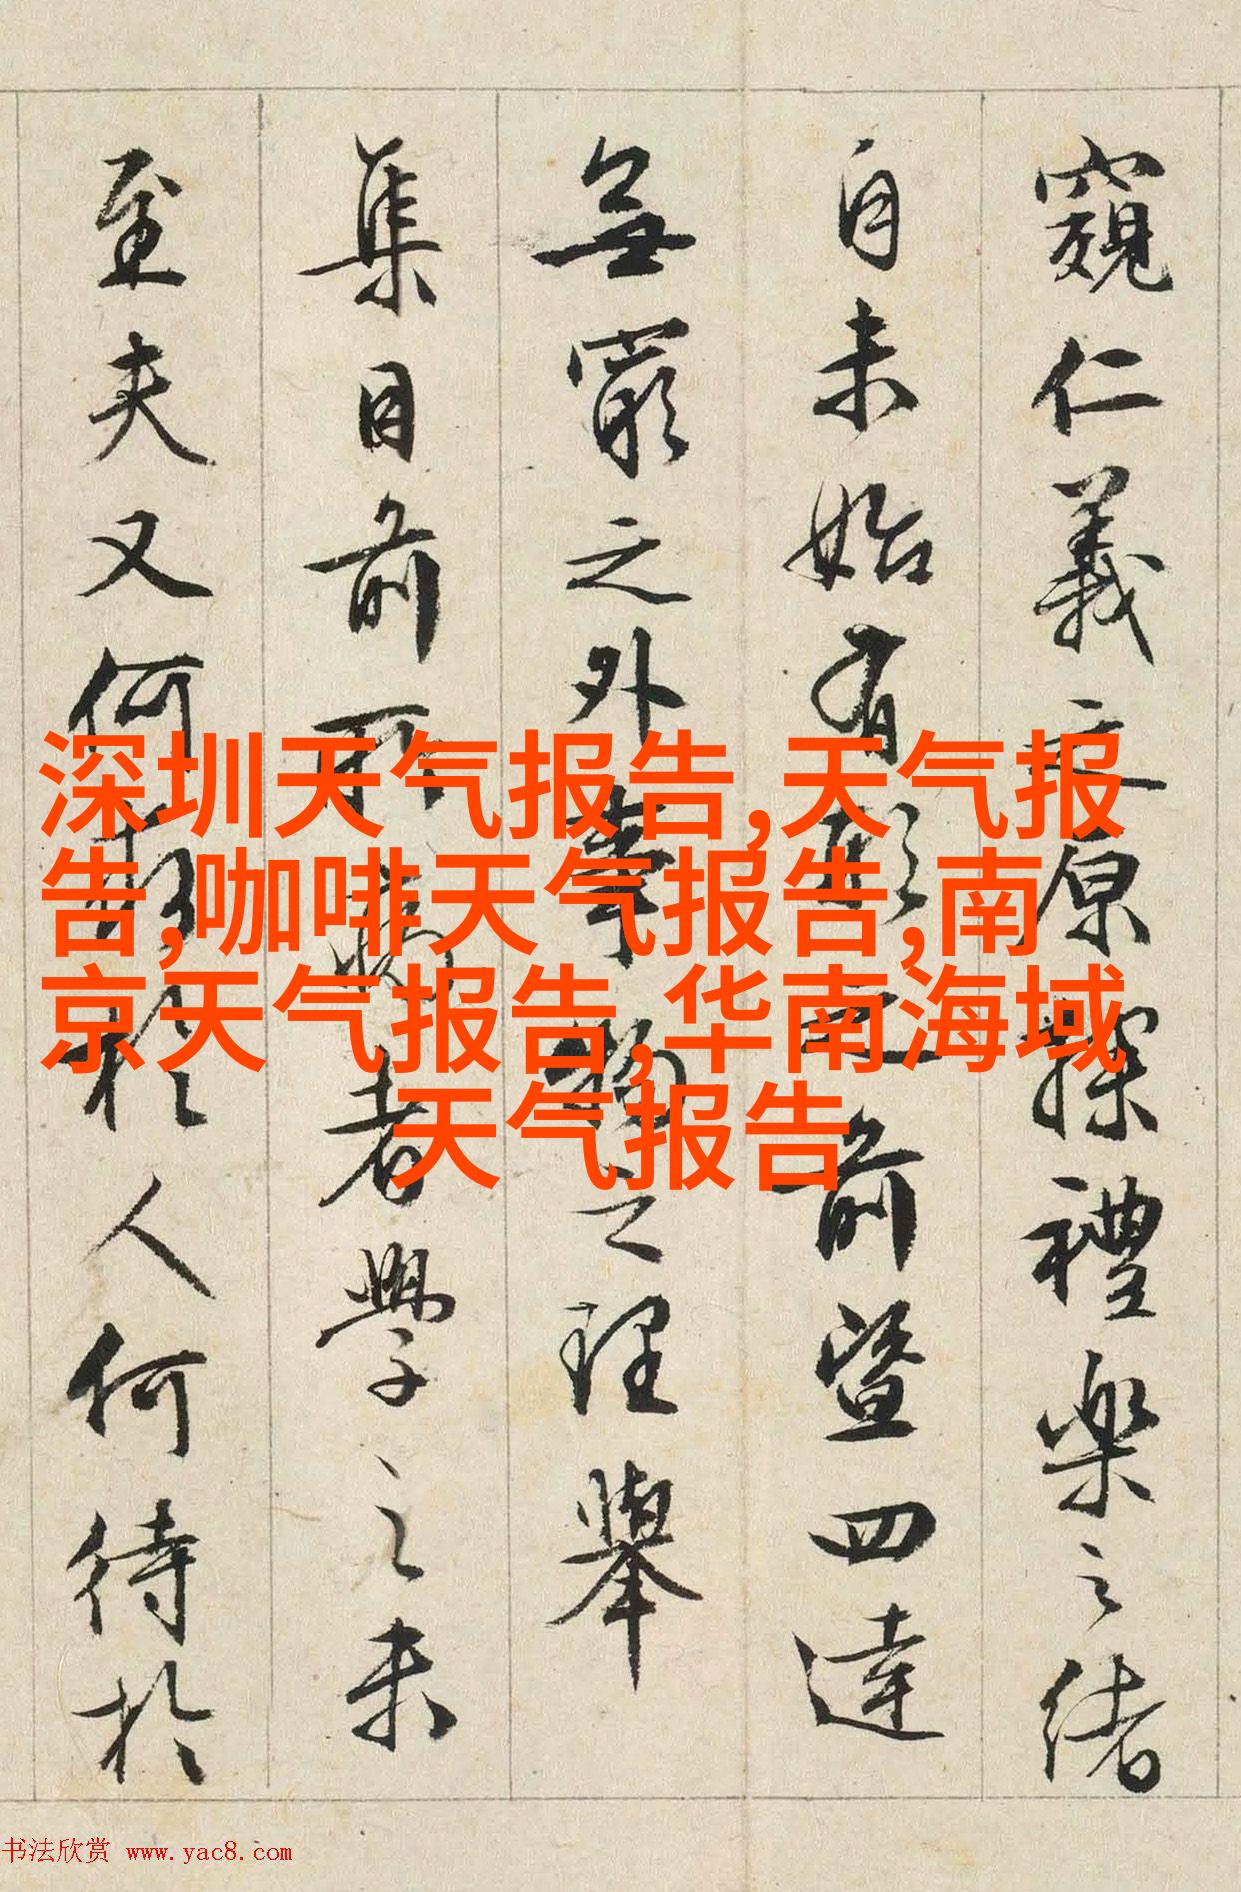 窺仁義之原探禮樂之緒
自未始有形之前暨四達
無窮之外事物之理舉
集目前所病者學之未
至夫又何求於人何待於
深圳天气报告,天气报
告,咖啡天气报告,南
京天气报告,华南海域
天气报告
书法欣赏 www.yac8.com